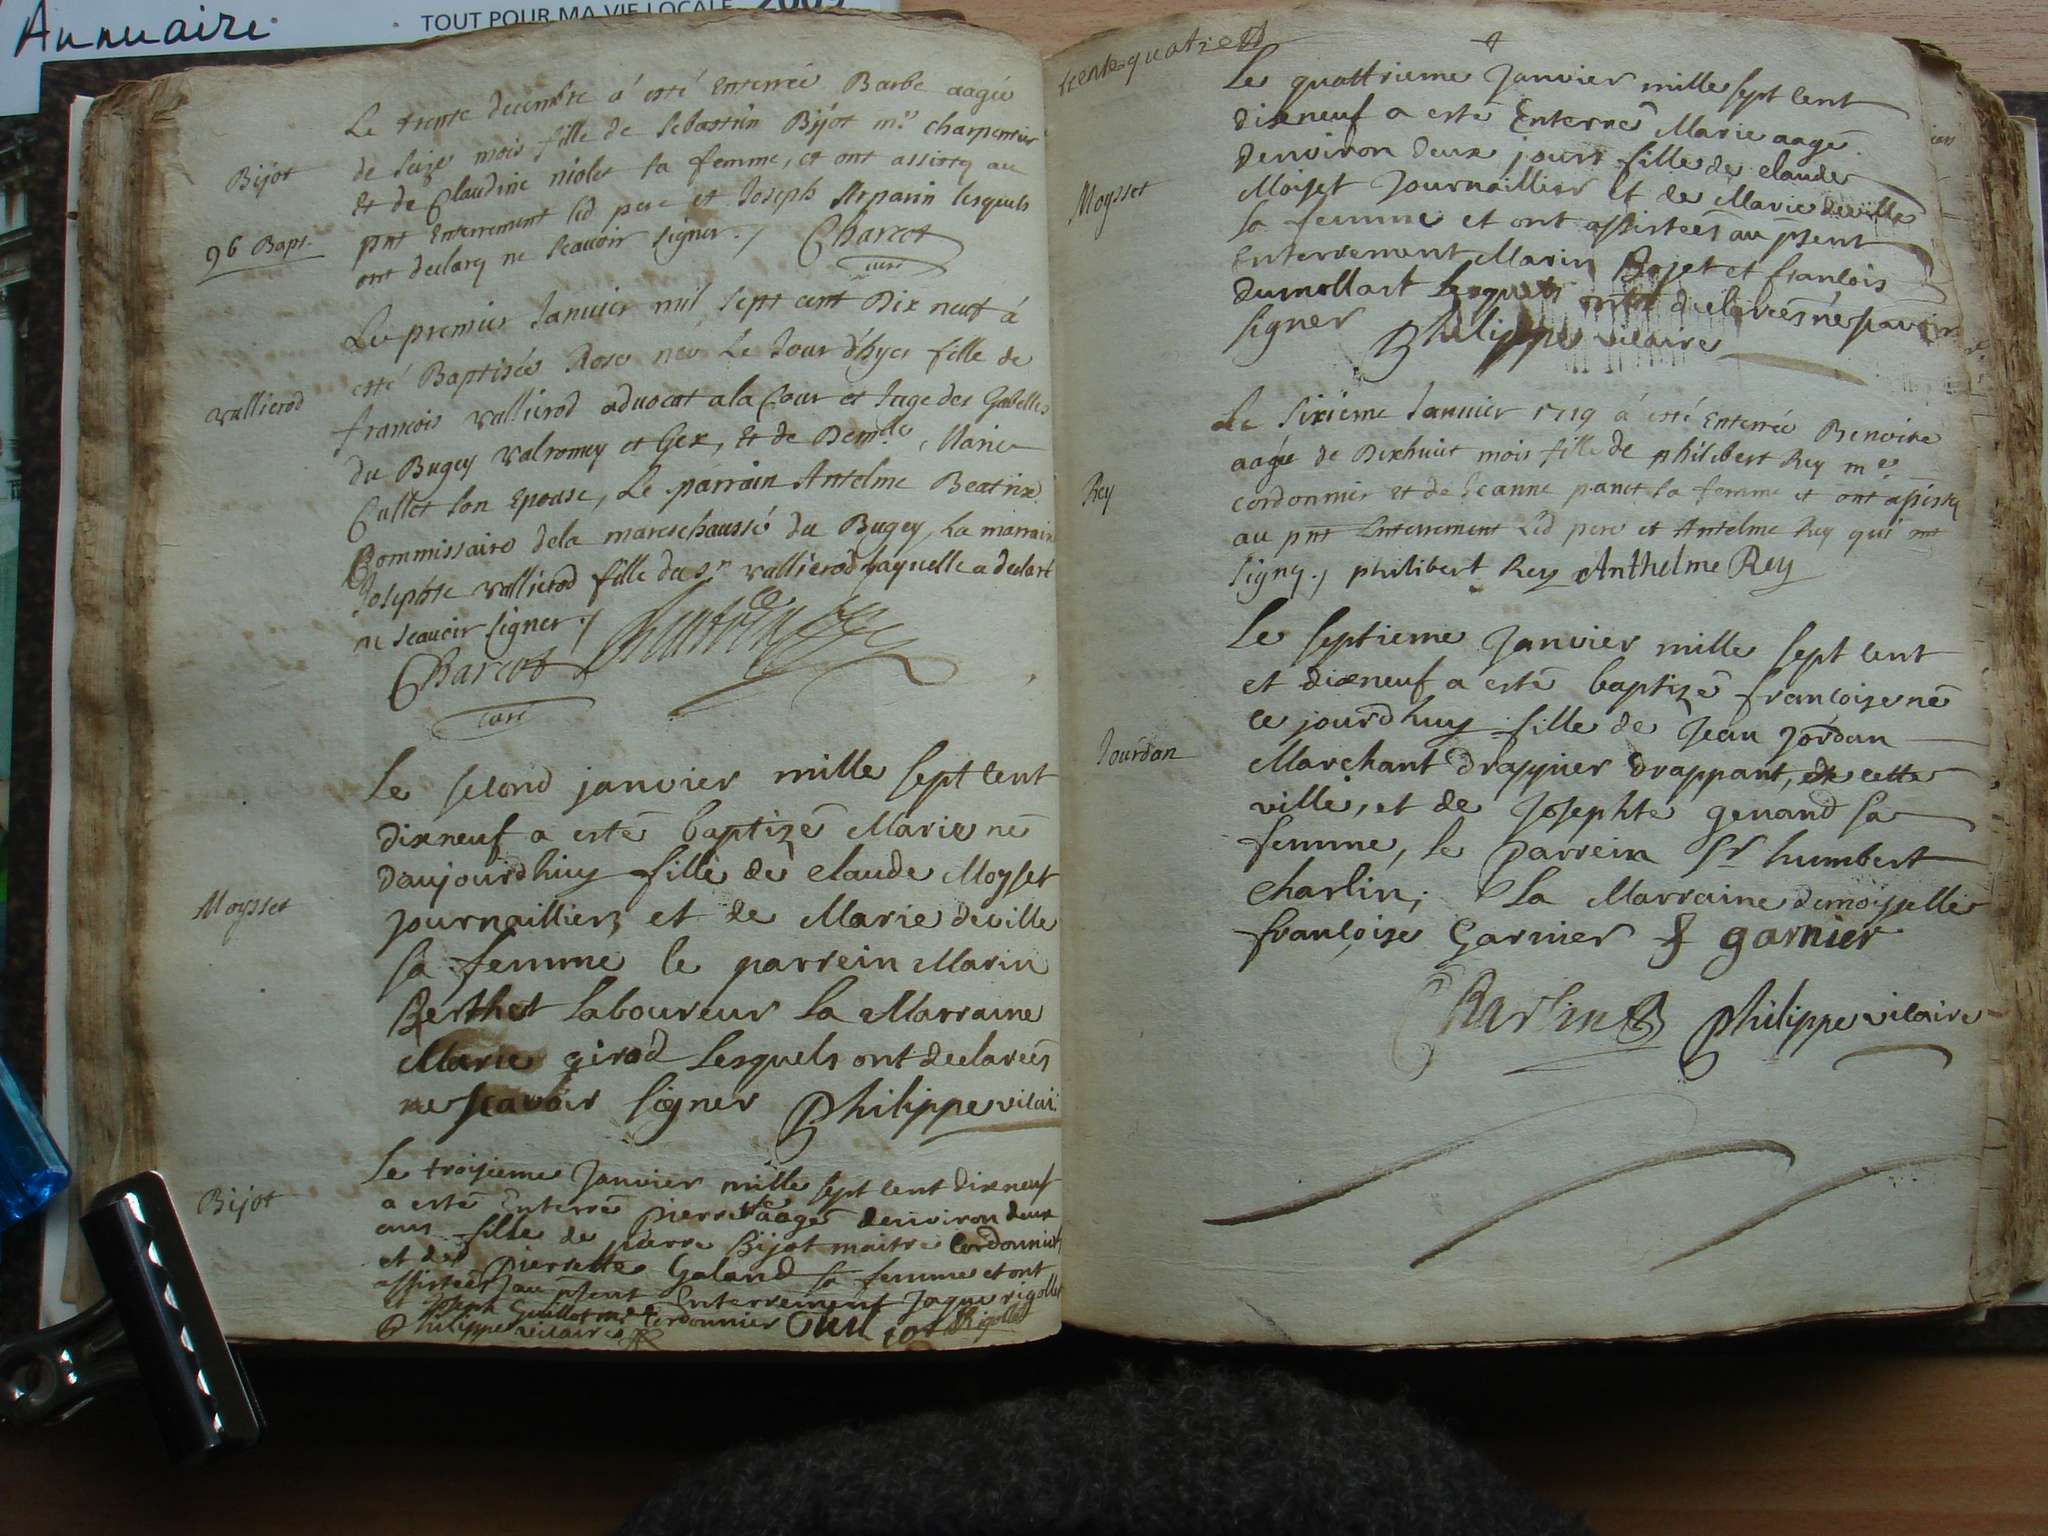 Annuaire
TOUT POUR MA VIE LOCALE 2009
Le trente decembre á esté Enterrée Barbe aagée
de seize mois fille de Sebastien Bijot m.e charpentier
Bijot
et de Claudine niolet sa femme, et ont assisteq au
pnt Enterrement led pere et Joseph Arparin lesquels
96 Bapt.
ont declareq ne scauoir signer ./ Charcot
curé
Le premier Januier mil sept cent Dix neuf á
esté Baptisée Rose neé Le Jour d'hyer fille de
vallierod
francois vallierod aduocat a la Cour et Juge des Gabelles
du Bugey valromey et Gex, Et de Dem.lle Marie
Cullet son Epouse, Le parrain Antelme Beatrix
Commissaire de la mareschaussé du Bugey, La marraine
Josephte vallierod fille du Sr vallierod laquelle a declaré
ne scauoir signer ./
Charcot
curé
Le second janvier mille sept cent
dixneuf a esté baptizé Marie né
d'aujourdhuy fille de claude Moyset
Moysset
journaillier et de Marie deville
sa femme le parrein Marin
Berthet laboureur la Marraine
Marie girod lesquels ont declareés
ne scavoir signer Philippe vicai.
Le troisieme janvier mille sept cent dixneuf
Bijot
a esté Enterré pierrette aagé denviron deux
ans fille de pierre Bijot maitre Cordonnier
et de pierrette Galand sa femme et ont
assisteés au psent Enterrement jaque rigollet
et joseph Guillot me Cordonnier Guillot JRigollet
Philippe vicaire
trente quatre
Le quattrieme janvier mille sept cent
dixneuf a esté Enterré Marie aagé
denviron deux jours fille de claude
Moysset
Moiset journaillier et de Marie deville
sa femme et ont assisteés au psent
Enterrement Marin Bojet et francois
dumollart lesquels ont declareés ne scavoir
signer Philippe vicaire
Le sixieme Januier 1719 á esté Enterrée Benoite
aagée de Dixhuit mois fille de philibert Rey me
Rey
cordonnier et de Jeanne panet sa femme et ont assisteq
au pnt Enterrement led pere et Antelme Rey qui ont
signeq ./ philibert Rey Anthelme Rey
Le septieme janvier mille sept cent
et dixneuf a esté baptizé françoise né
ce jourdhuy fille de jean jordan
Jourdan
Marchant drappier drappant, de cette
ville, et de josephte genand sa
femme, le parrein Sr humbert
Charlin, La Marraine demoiselle
françoise Garnier f garnier
Charlin Philippe vicaire